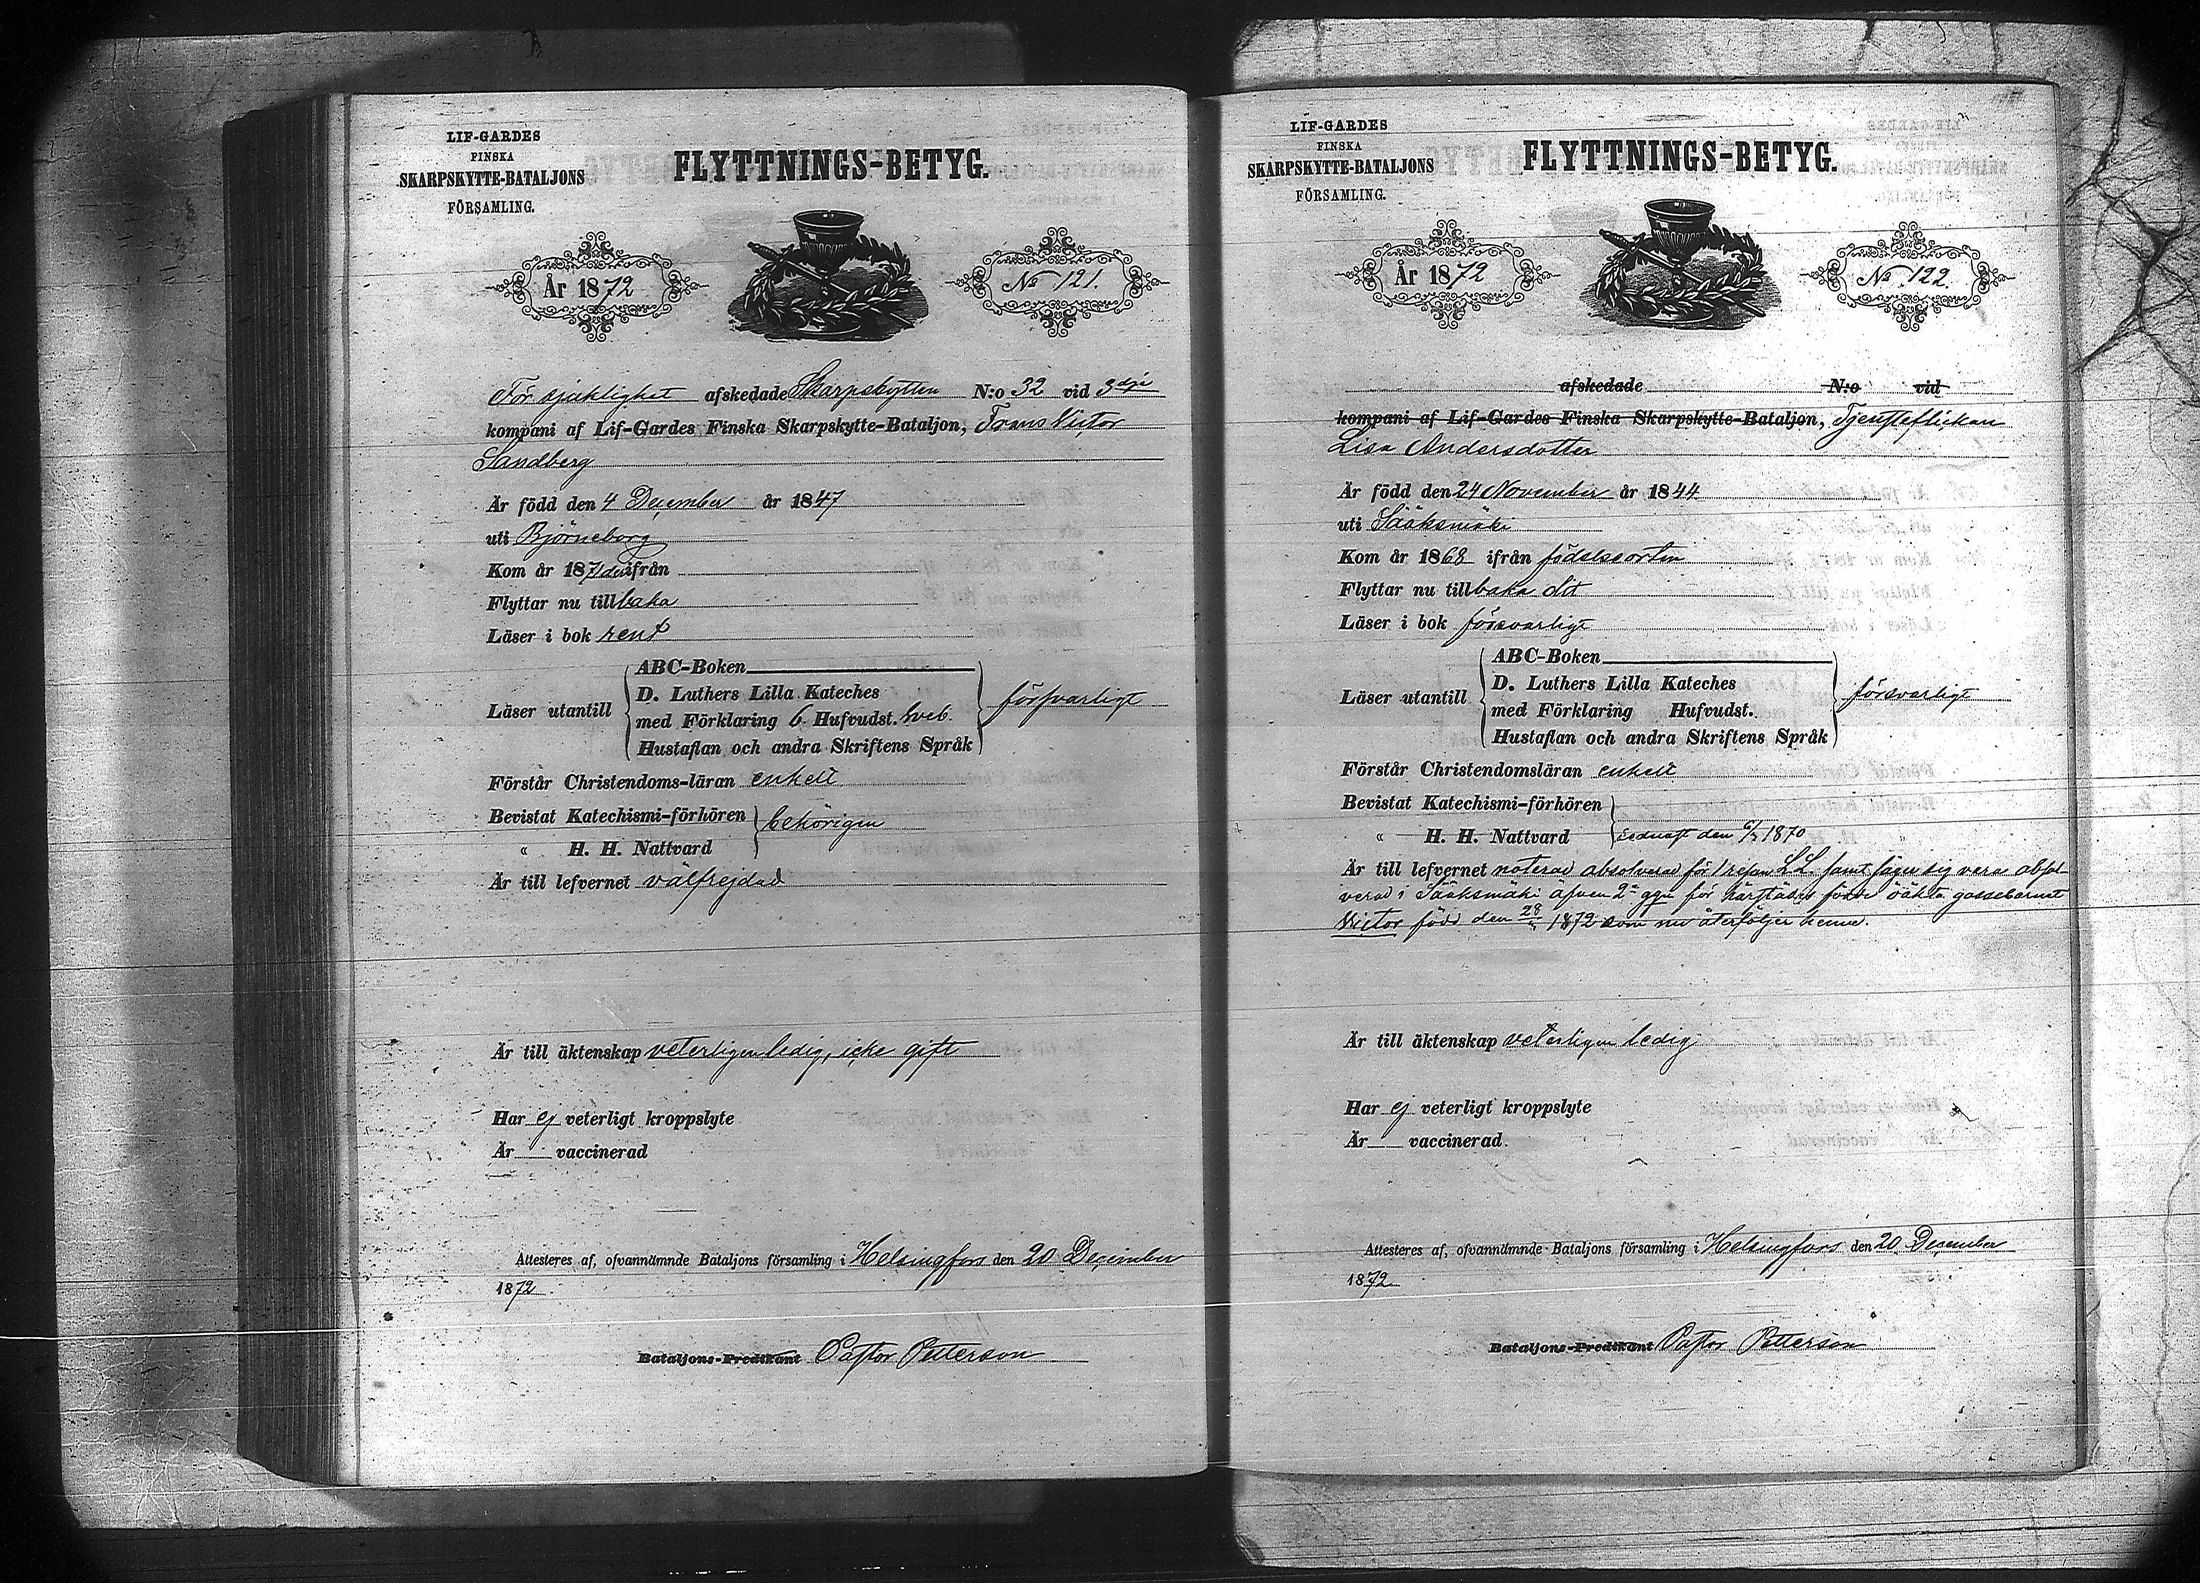 LIF-GARDES
FINSKA
SKARPSKYTTE-BATALJONS
FÖRSAMLING.
FLYTTNINGS-BETYG.
År 1872
No 121.
För sjuklighet afskedade Skarpskytten N:o 32 vid 3dje
kompani af Lif-Gardes Finska Skarpskytte-Bataljon, Frans Victor
Sandberg
Är född den 4 December år 1847
uti Björneborg
Kom år 1871 ifrån
Flyttar nu tillbaka
Läser i bok rent
Läser utantill
ABC-Boken
D. Luthers Lilla Kateches
med Förklaring 6 Hufvudst. Sveb.
Hustaflan och andra Skriftens Språk
försvarligt
Förstår Christendoms-läran enkelt
Bevistat Katechismi-förhören
" H. H. Nattvard
behörigen
Är till lefvernet välfrejdad
Är till äktenskap veterligen ledig, icke gift
Har ej veterligt kroppslyte
Är vaccinerad
Attesteres af, ofvannämnde Bataljons församling i Helsingfors den 20 December
1872
Bataljons-Predikant Pastor Petterson
LIF-GARDES
FINSKA
SKARPSKYTTE-BATALJONS
FÖRSAMLING.
FLYTTNINGS-BETYG.
År 1872
No 122.
afskedade N:o vid
kompani af Lif-Gardes Finska Skarpskytte-Bataljon, Tjensteflickan
Lisa Andersdotter
Är född den 24 November år 1844
uti Sääksmäki
Kom år 1868 ifrån födelseorten
Flyttar nu tillbaka dit
Läser i bok försvarligt
Läser utantill
ABC-Boken
D. Luthers Lilla Kateches
med Förklaring Hufvudst.
Hustaflan och andra Skriftens Språk
försvarligt
Förstår Christendomsläran enkelt
Bevistat Katechismi-förhören
" H. H. Nattvard
sednast den 6/3 1870
Är till lefvernet noterad absolverad för 1 resan LL. samt säger sig vara absol-
verad i Sääksmäki äfven 2a ggn för härstädes födde oäkta gossebarnet
Victor född den 28 1872 som nu återföljer henne.
Är till äktenskap veterligen ledig
Har ej veterligt kroppslyte
Är vaccinerad.
Attesteres af, ofvannämnde Bataljons församling i Helsingfors den 20 December
1872
Bataljons-Predikant Pastor Petterson